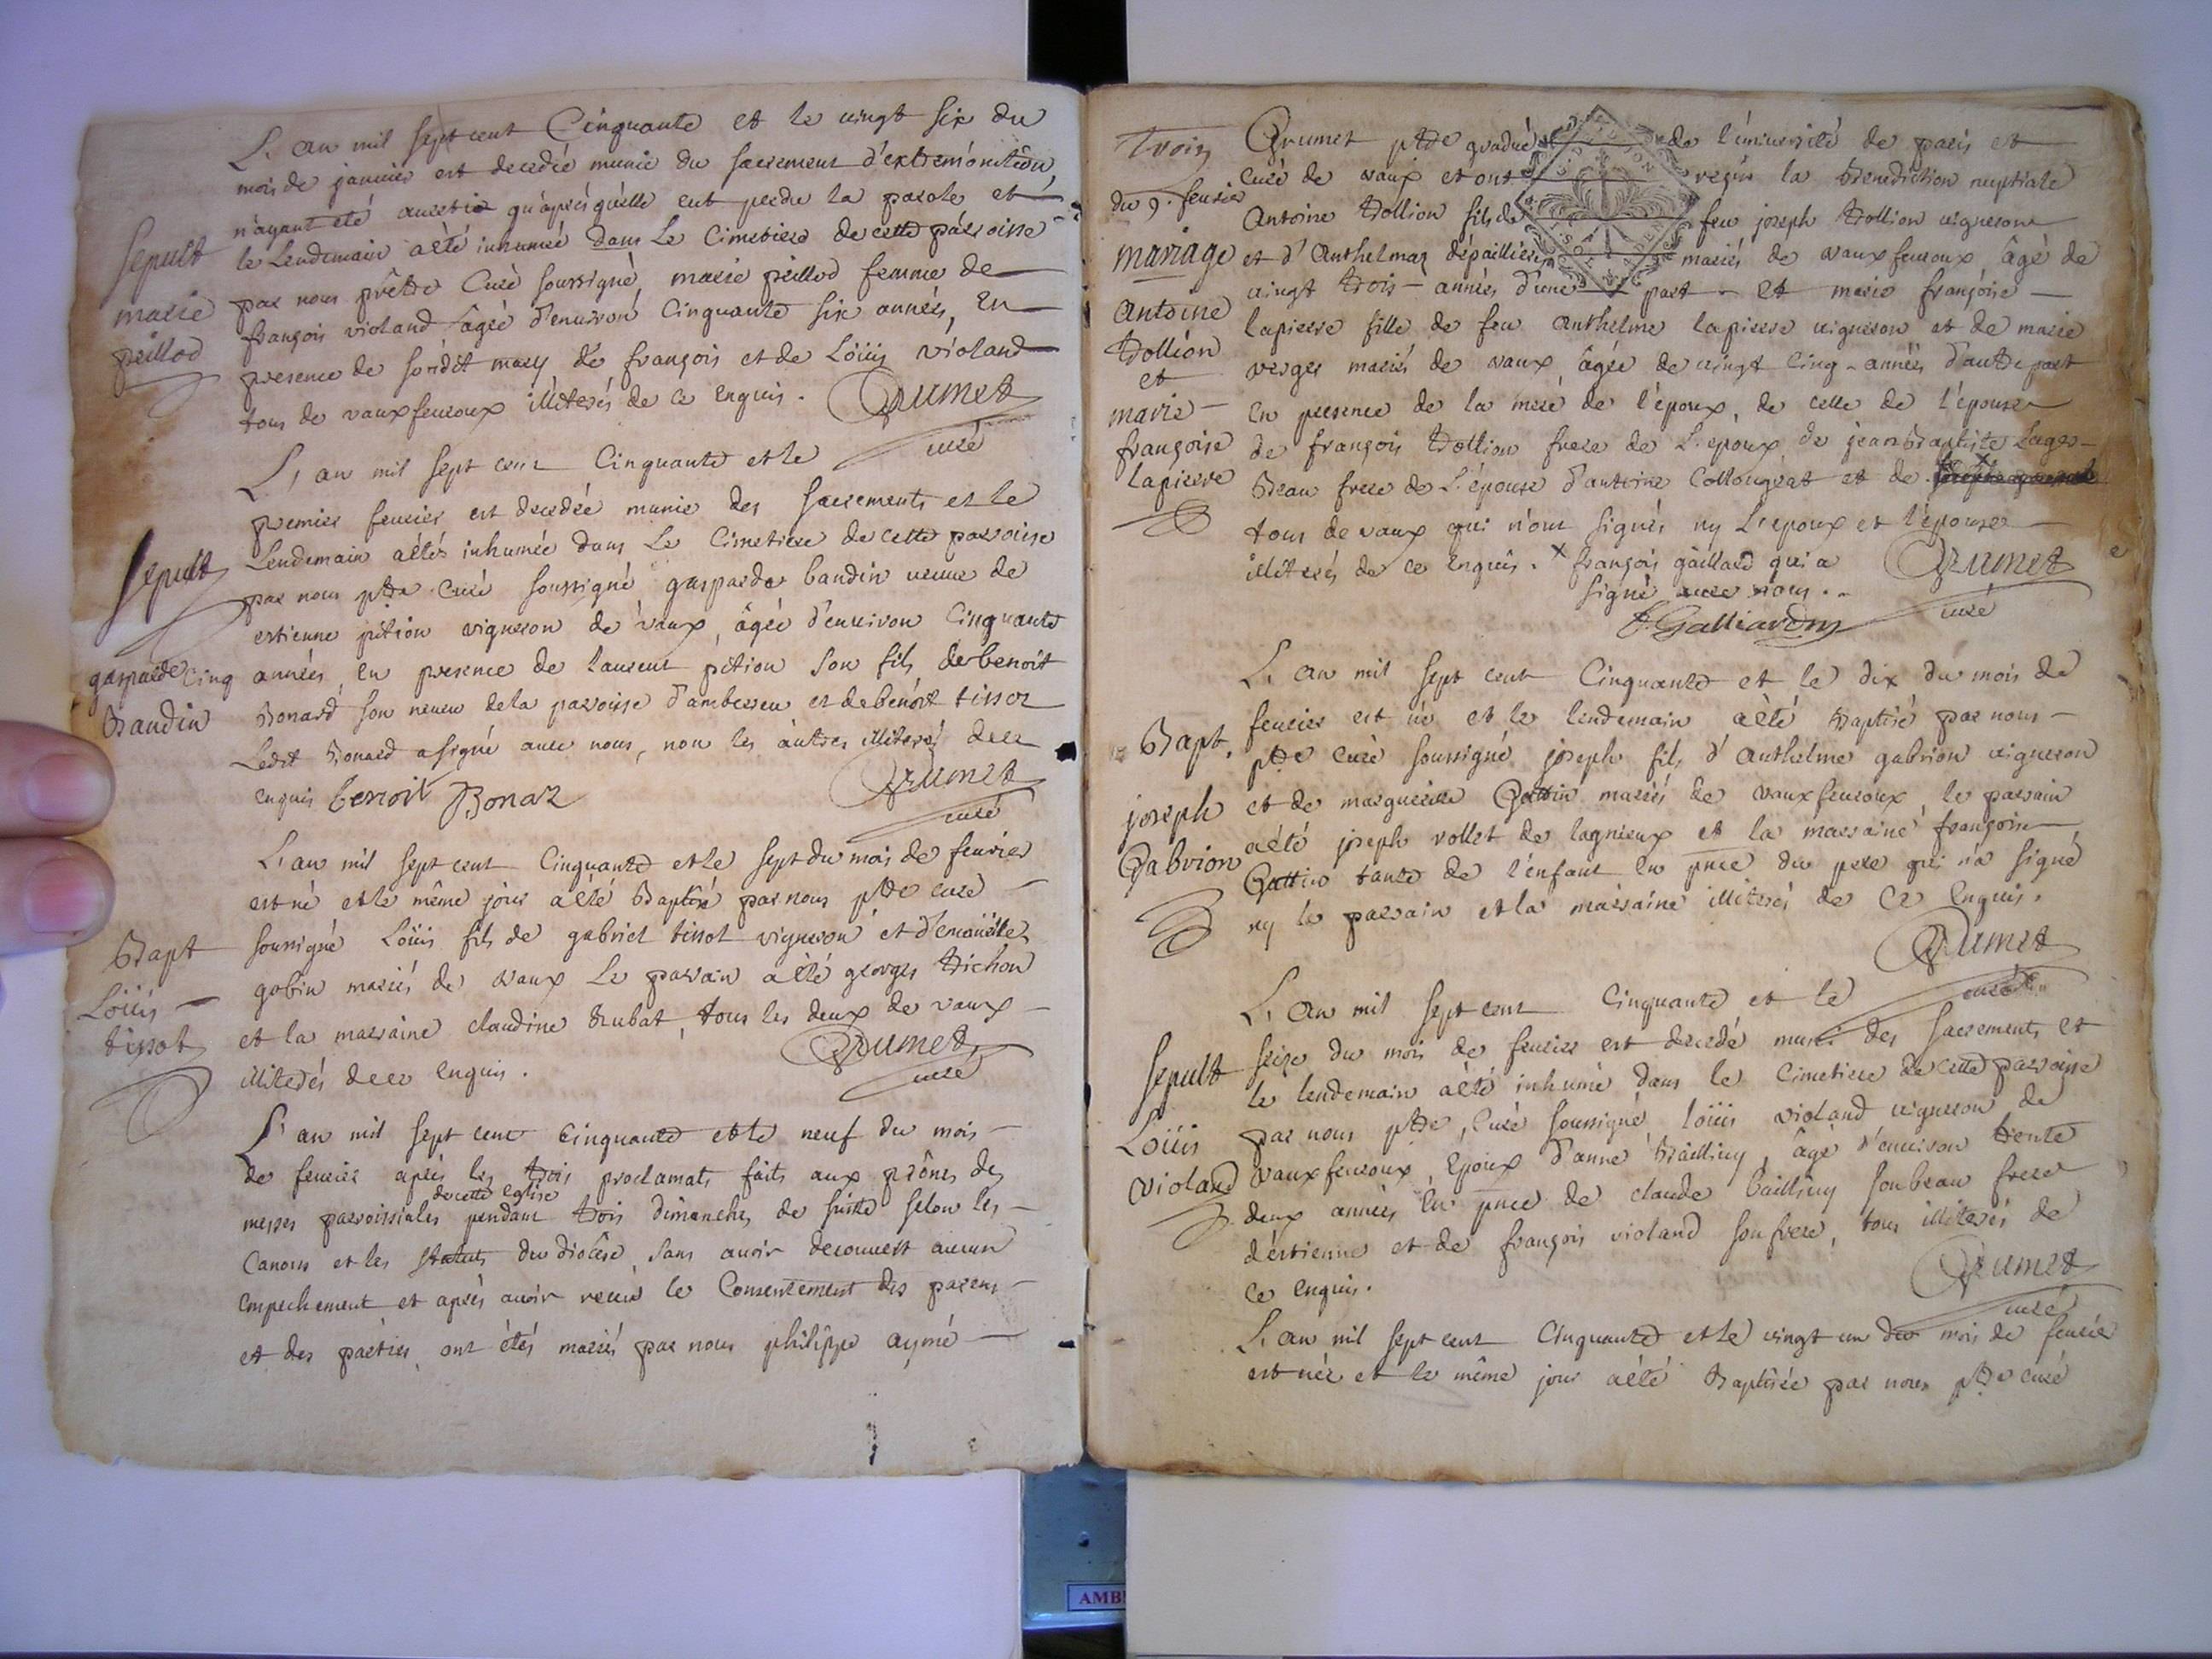 L'an mil sept cent Cinquante et le vingt six du
mois de janvier est decedée munie du sacrement d'extremonction,
n'ayant été avertie qu'après qu'elle eut perdu la parole et
le Lendemain aété inhumée dans Le Cimetiere de cette paroisse
par nous prêtre Curé soussigné, marie peillod femme de
françois violand âgée d'environ Cinquante six années, En
presence de sondit mary, de françois et de Löüis violand
tous de vauxfevroux illiterés de ce Enquis. Grumet
curé
Sepult
marie
peillod
L'an mil sept cent Cinquante et le
premier fevrier est decedée munie des sacrements et le
Lendemain aétés inhumée dans Le Cimetiere de cette paroisse
par nous ptre Curé soussigné gasparde baudin veuve de
estienne pition vigneron de vaux, âgée d'environ Cinquante
Cinq années, En presence de laurent pition son fils de benoit
Bonard son neveu dela paroisse d'ambesieu et de benoit tissot
Ledit Bonard asigné avec nous, non les autres illiterés dece
enquis benoit Bonaz Grumet
curé
Sepult
gasparde
Baudin
L'an mil sept cent Cinquante et le sept du mois de fevrier
est né et le même jour aété Baptisé par nous ptre curé
soussigné Löüis fils de gabriel tissot vigneron et d'
gobin mariés de vaux Le parain aété georges Trichon
et la maraine claudine Trubat, tous les deux de vaux
illiterés dece Enquis. Grumet
curé
Bapt
Löüis
tissot
L'an mil sept cent Cinquante et le neuf du mois
de fevrier après les trois proclamats faits aux prônes des
de cette eglise
messes paroissiales pendant trois dimanches de suitte selon les
Canons et les statuts du diocèse, sans avoir decouvert aucun
Empechement et après avoir receu le Consentement des parens
et des parties, ont étés mariés par nous philippe aymé
Grumet ptre gradué de l'université de paris et
curé de vaux et ont reçus la Benediction nuptiale
Antoine Trollion fils de feu joseph Trollion vigneron
et d'Anthelmaz dépaillieres mariés de vauxfevroux âgé de
vingt trois années d'une part et marie françoise
lapierre fille de feu Anthelme lapierre vigneron et de marie
verger mariés de vaux, âgée de vingt Cinq années d'autre part
En presence de la mere de l'époux, de celle de l'épouse
de françois Trollion frere de L'époux de jean Baptiste Lager
Beau frere de L'épouse d'antoine Collongeat et de x
tous de vaux qui n'ont signés ny L'epoux et l'épouse
illiterés de ce Enquis. x françois gaillard qui a
signé avec nous. Grumet
curé
F. Galliardon
Trois
du 9. fevrier
mariage
Antoine
Trollion
et
marie
françoise
lapierre
L'an mil sept cent Cinquante et le dix du mois de
fevrier est né et le lendemain aété Baptisé par nous
ptre curé soussigné joseph fils d'Anthelme gabrion vigneron
et de marguerite Gottin mariés de vauxfevroux, le parain
aété joseph vollet de lagnieux et la maraine françoise
Gottin tante de l'enfant En pnce du pere qui n'a signé
ny le parain et la maraine illiterés de Ce Enquis.
Grumet
curé
Bapt.
joseph
Gabrion
L'an mil sept cent Cinquante et le
seize du mois de fevrier est decedé muni des sacrements et
le lendemain aété inhumé dans le Cimetiere de cette paroisse
par nous ptre, Curé soussigné, löüis violand vigneron de
vauxfevroux, Epoux d'anne Bailliny, âgé d'environ trente
deux années En pnce de claude bailliny son beau frere
d'estienne et de françois violand son frere, tous illiterés de
ce Enquis. Grumet
curé
Sepult
Löüis
violand
L'an mil sept cent Cinquante et le vingt un du mois de fevrier
est née et le même jour aété Baptisée par nous ptre curé
AMB